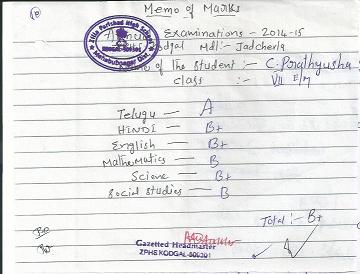 Memo of Marks
Zilla Parishad High School
Annual Examinations - 2014-15
Kodgal Mdl:- Jadcherla
Mahabubnagar Dist.
Name of The Student :- C. Prathyusha
class :- VII E/M
Telugu — A
HINDI — B+
English — B+
Mathematics — B
Science — B+
Social Studies — B
Total :- B+
Gazetted Headmaster
ZPHS KODGAL-509301